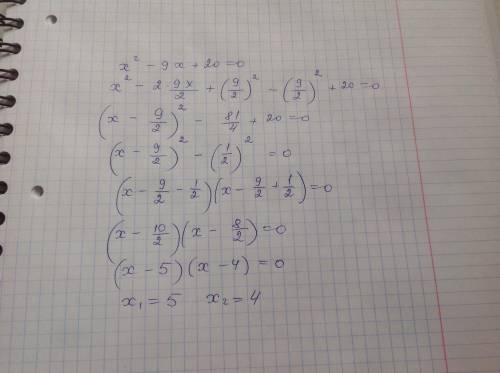 x² - 9x + 20 = 0
x² - 2·9x/2 + (9/2)² - (9/2)² + 20 = 0
(x - 9/2)² - 81/4 + 20 = 0
(x - 9/2)² - (1/2)² = 0
(x - 9/2 - 1/2)(x - 9/2 + 1/2) = 0
(x - 10/2)(x - 8/2) = 0
(x - 5)(x - 4) = 0
x₁ = 5 x₂ = 4